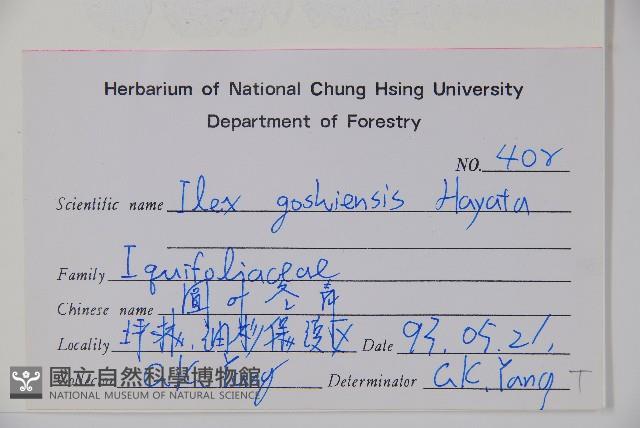 Herbarium of National Chung Hsing University
Department of Forestry
NO. 408
Scientific name Ilex goshiensis Hayata
Family Iquifoliaceae
Chinese name 圓叶冬青
Locality 坪林, 油杉保護区 Date 93.05.21.
G.K. Yang Determinator G.K. Yang T
國立自然科學博物館
NATIONAL MUSEUM OF NATURAL SCIENCE